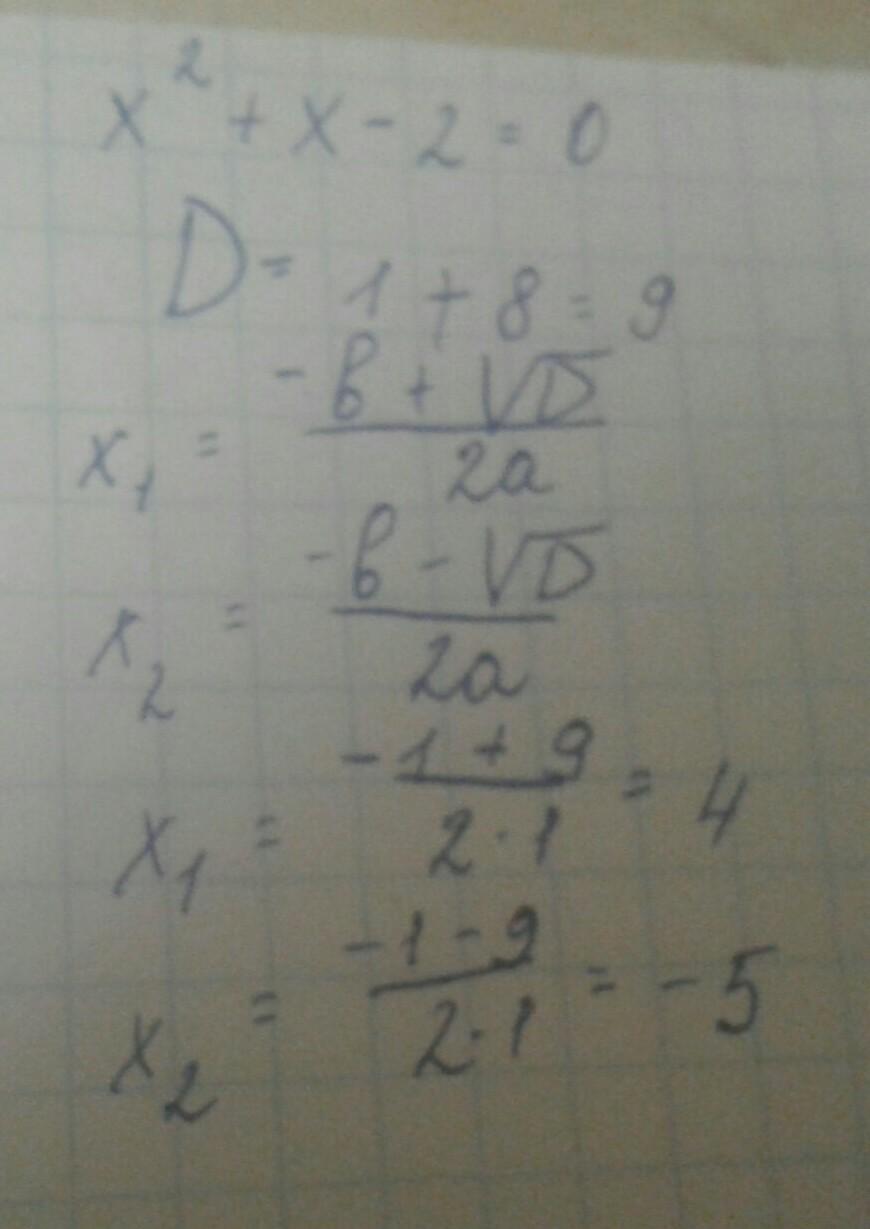 x² + x - 2 = 0
D = 1 + 8 = 9
x₁ = (-в + √D) / 2a
x₂ = (-в - √D) / 2a
x₁ = (-1 + 9) / (2·1) = 4
x₂ = (-1 - 9) / (2·1) = -5